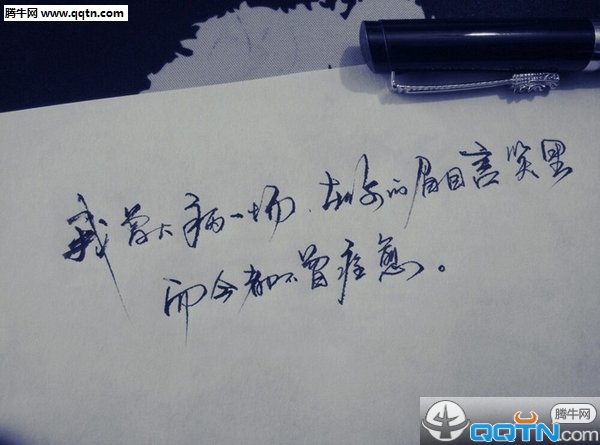 腾牛网 www.qqtn.com
我曾大病一场,在你的眉目言笑里
而今都不曾痊愈。
腾牛网
QQTN.com